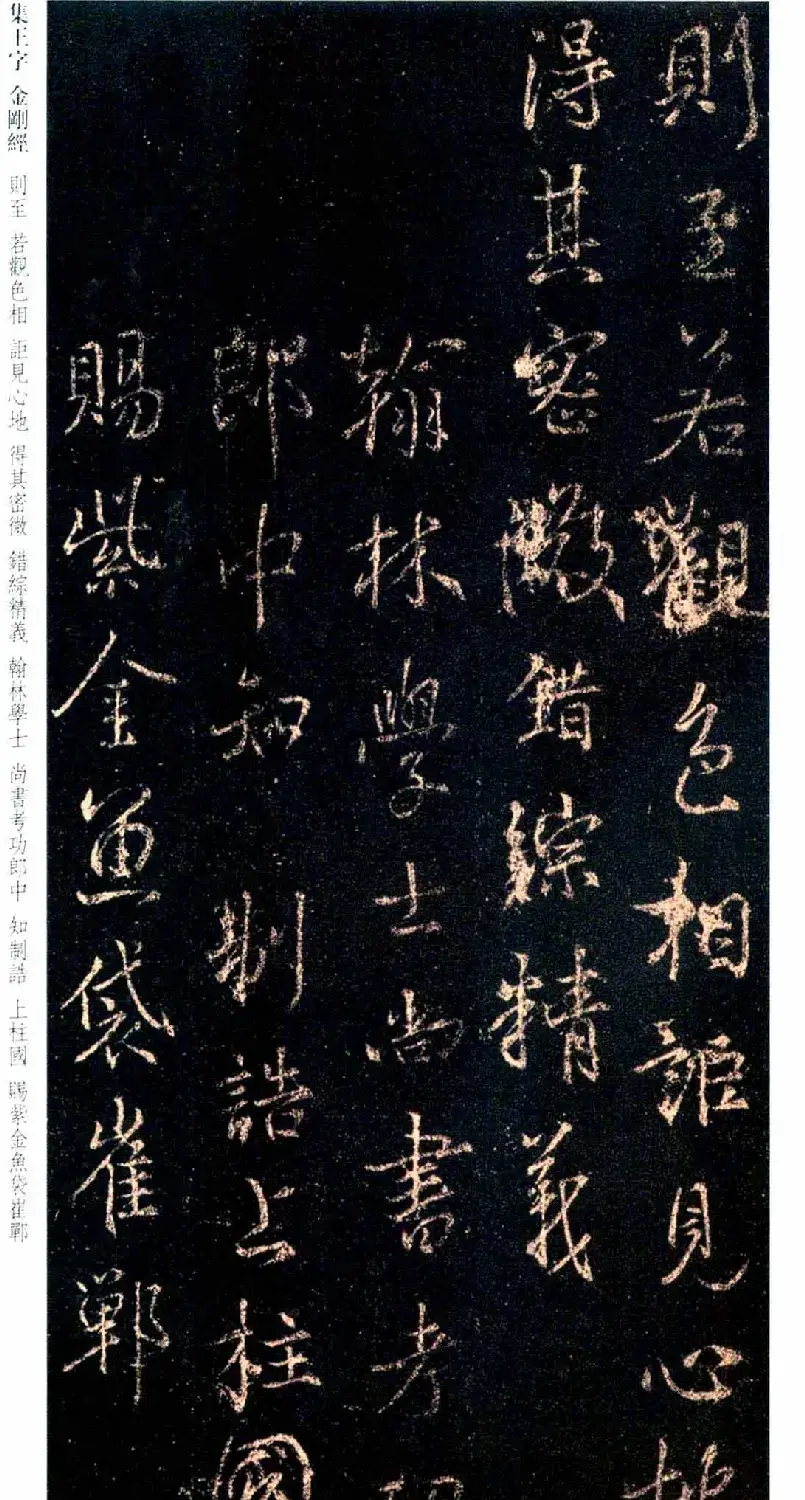 則至若觀色相詎見心地
得其密微錯綜精義
翰林學士尚書考功
郎中知制誥上柱國
賜紫金魚袋崔鄲
集王字 金剛經 則至 若觀色相 詎見心地 得其密微 錯綜精義 翰林學士 尚書考功郎中 知制誥 上柱國 賜紫金魚袋崔鄲